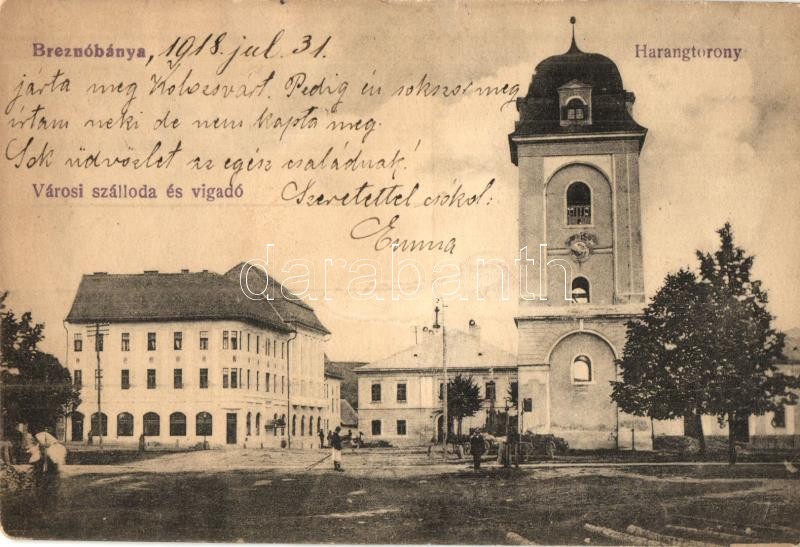 Breznóbánya, 1918 jul. 31.
Harangtorony
járta meg Kolozsvárt. Pedig én sokszor meg
írtam neki de nem kapta meg.
Sok üdvözlet az egész családnak!
Városi szálloda és vigadó
Szeretettel csókol:
Emma
darabanth